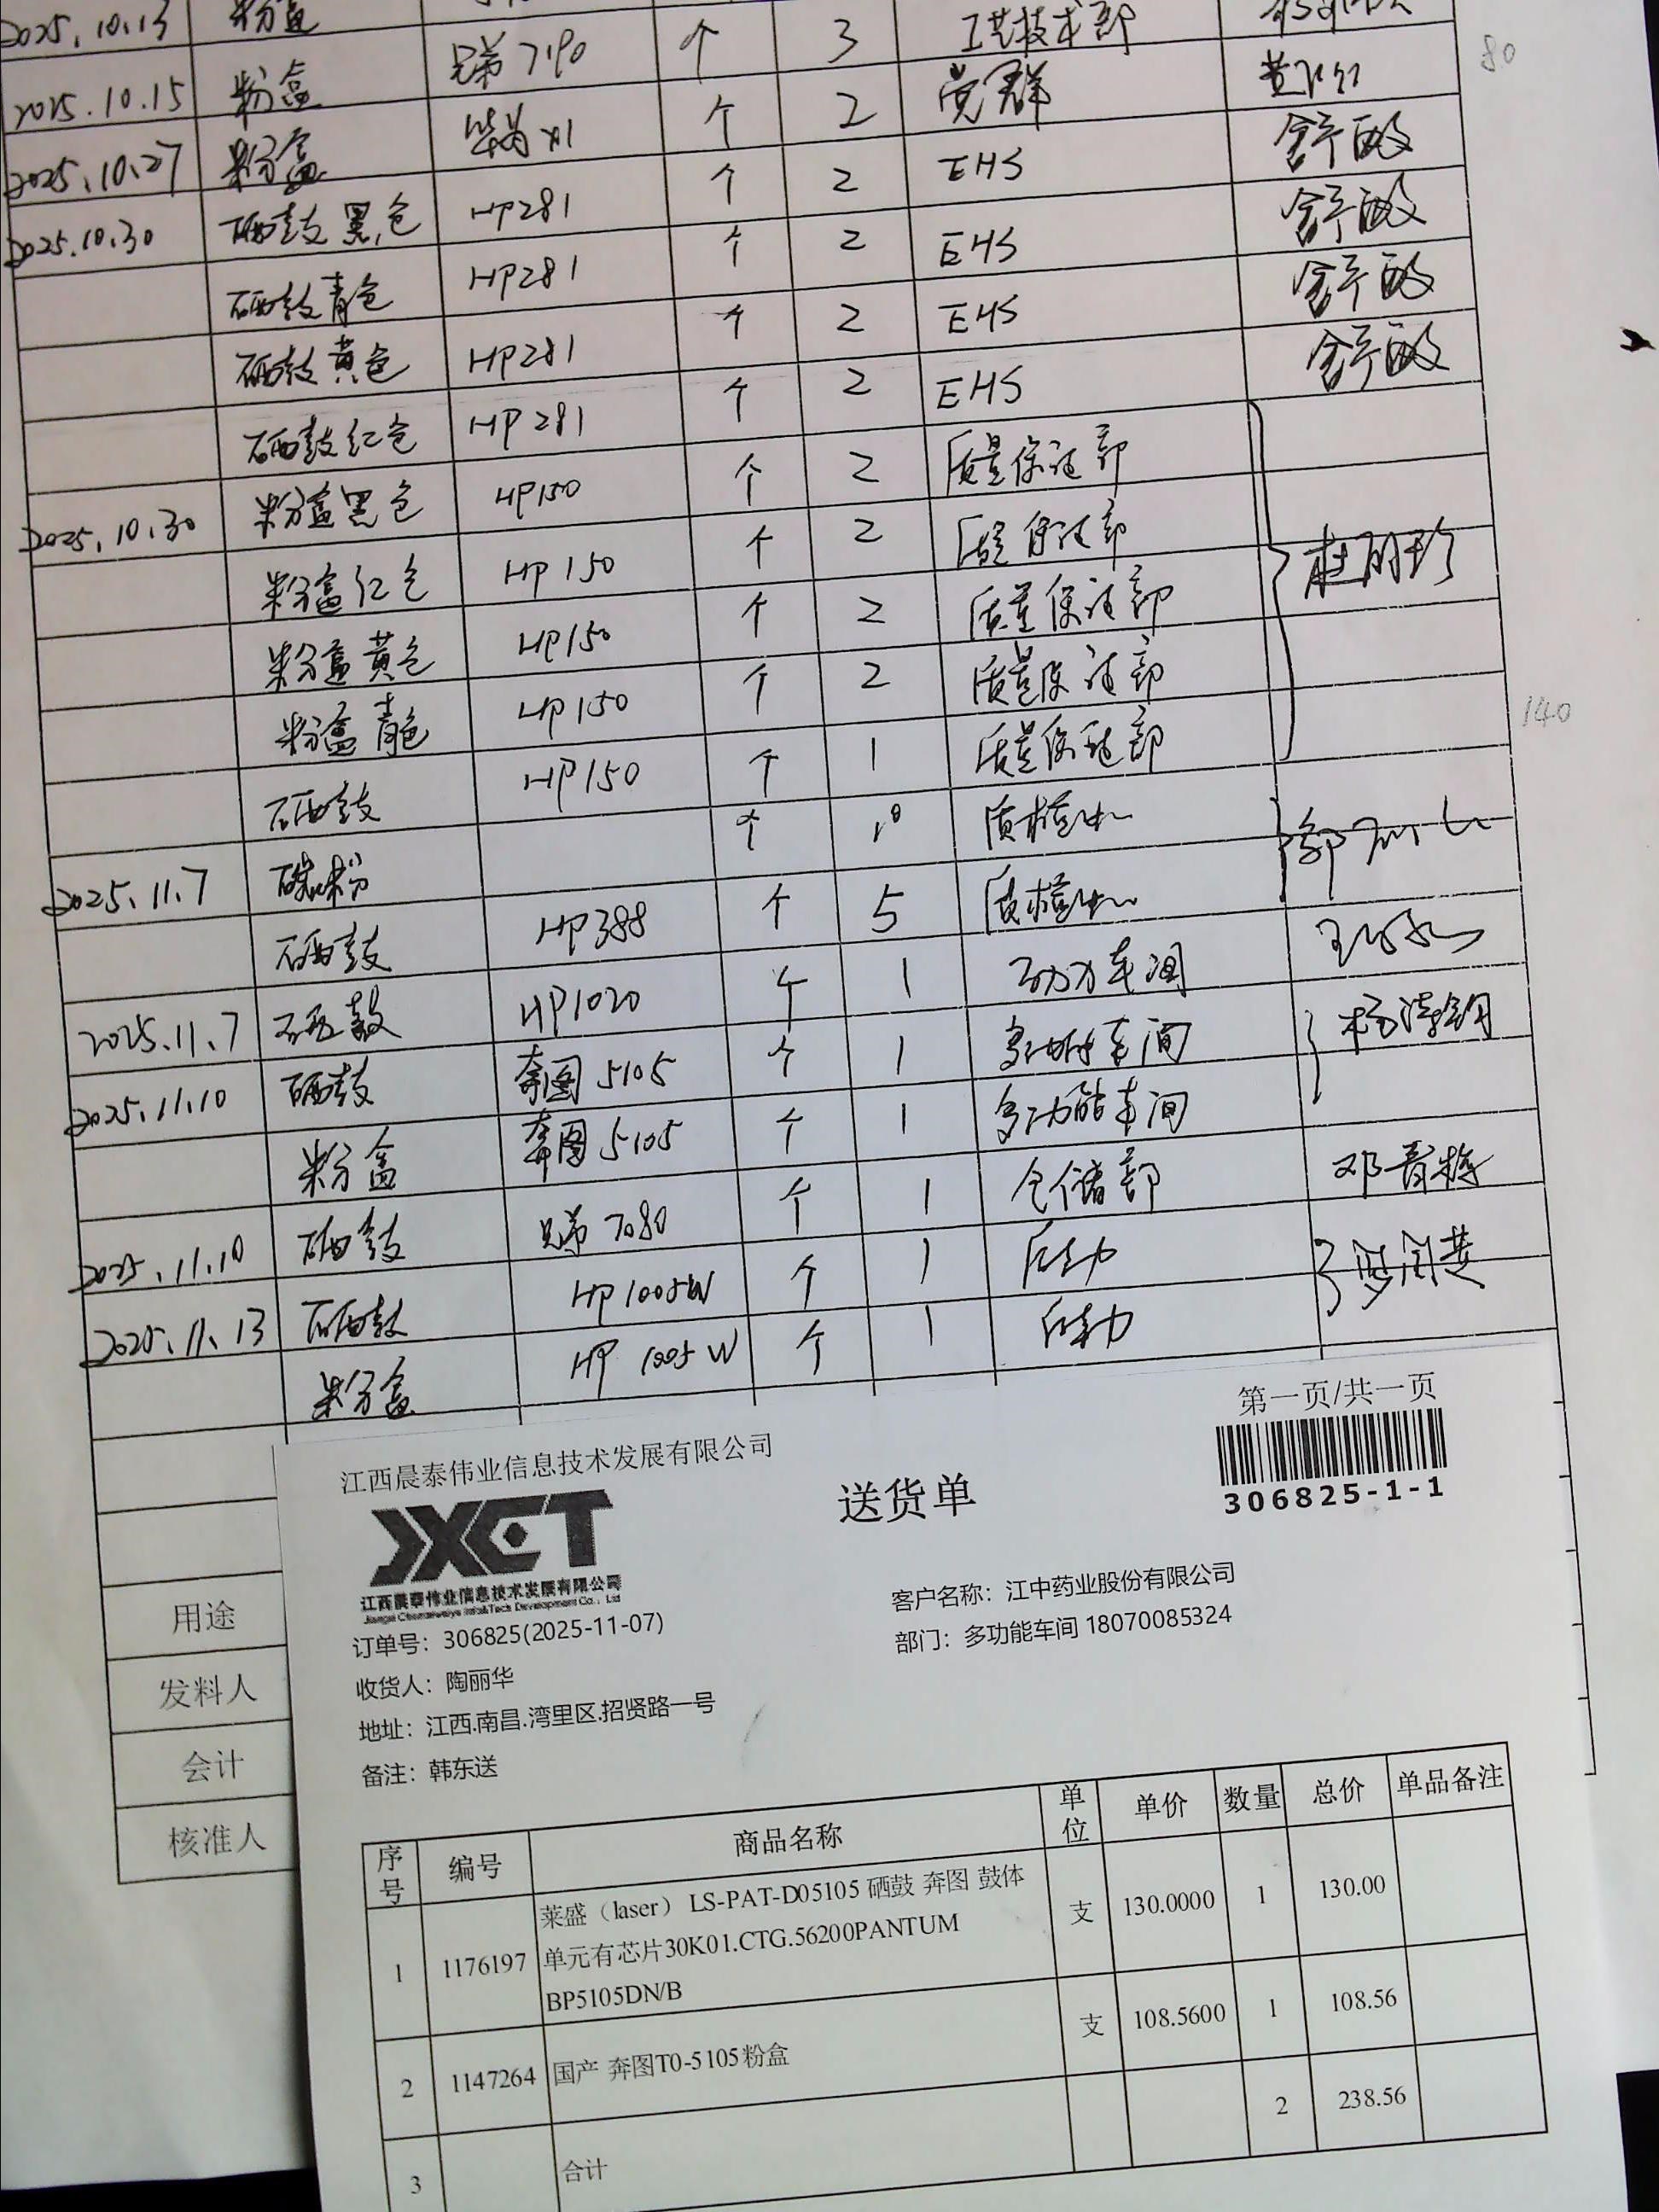 2025.10.13 粉盒
2025.10.15 粉盒 兄弟7190 个 3 工艺技术部
2025.10.27 粉盒 个 2 党群
2025.10.30 硒鼓黑色 HP281 个 2 EHS
硒鼓青色 HP281 个 2 EHS
硒鼓黄色 HP281 个 2 EHS
硒鼓红色 HP281 个 2 EHS
2025.10.30 粉盒黑色 HP150 个 2 质量保证部
粉盒红色 HP150 个 2 质量保证部
粉盒黄色 HP150 个 2 质量保证部
粉盒青色 HP150 个 2 质量保证部
硒鼓 HP150 个 1 质量保证部
2025.11.7 碳粉 个 10 质检中心
硒鼓 HP388 个 5 质检中心
2025.11.7 硒鼓 HP1020 个 1 动力车间
2025.11.10 硒鼓 奔图5105 个 1 多功能车间
粉盒 奔图5105 个 1 多功能车间
2025.11.10 硒鼓 兄弟7080 个 1 仓储部 邓青梅
2025.11.13 硒鼓 HP1005W 个 1
粉盒 HP 1005W 个 1
80
140
用途
发料人
会计
核准人
第一页/共一页
江西晨泰伟业信息技术发展有限公司
送货单
306825-1-1
JXCT
江西晨泰伟业信息技术发展有限公司
客户名称：江中药业股份有限公司
订单号：306825(2025-11-07)
部门：多功能车间 18070085324
收货人：陶丽华
地址：江西.南昌.湾里区.招贤路一号
备注：韩东送
序号 编号 商品名称 单位 单价 数量 总价 单品备注
1 1176197 莱盛（laser） LS-PAT-D05105 硒鼓 奔图 鼓体 支 130.0000 1 130.00
单元有芯片30K01.CTG.56200PANTUM
BP5105DN/B
2 1147264 国产 奔图T0-5105粉盒 支 108.5600 1 108.56
3 合计 2 238.56